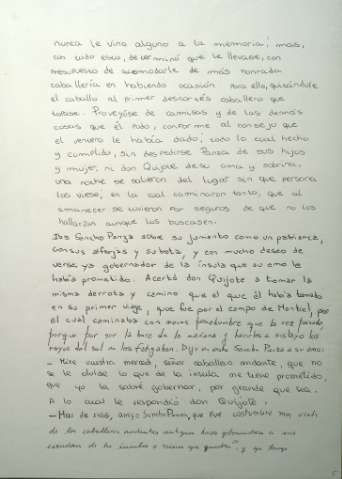 nunca le vino alguno a la memoria; mas,
con todo esto, determinó que le llevase, con
presupuesto de acomodarle de más honrada
caballería en habiendo ocasión para ello, quitándole
el caballo al primer descortés caballero que
topase. Proveyóse de camisas y de las demás
cosas que él pudo, conforme al consejo que
el ventero le había dado; todo lo cual hecho
y cumplido, sin despedirse Panza de sus hijos
y mujer, ni don Quijote de su ama y sobrina,
una noche se salieron del lugar sin que persona
los viese; en la cual caminaron tanto, que al
amanecer se tuvieron por seguros de que no los
hallarían aunque los buscasen.
Iba Sancho Panza sobre su jumento como un patriarca,
con sus alforjas y su bota, y con mucho deseo de
verse ya gobernador de la ínsula que su amo le
había prometido. Acertó don Quijote a tomar la
misma derrota y camino que el que él había tomado
en su primer viaje, que fue por el campo de Montiel, por
el cual caminaba con menos pesadumbre que la vez pasada,
porque por ser la hora de la mañana y herirles a soslayo los
rayos del sol no les fatigaban. Dijo en esto Sancho Panza a su amo:
- Mire vuestra merced, señor caballero andante, que no
se le olvide lo que de la ínsula me tiene prometido,
que yo la sabré gobernar, por grande que sea.
A lo cual le respondió don Quijote:
- Has de saber, amigo Sancho Panza, que fue costumbre muy usada
de los caballeros andantes antiguos hacer gobernadores a sus
escuderos de las ínsulas o reinos que ganaban, y yo tengo